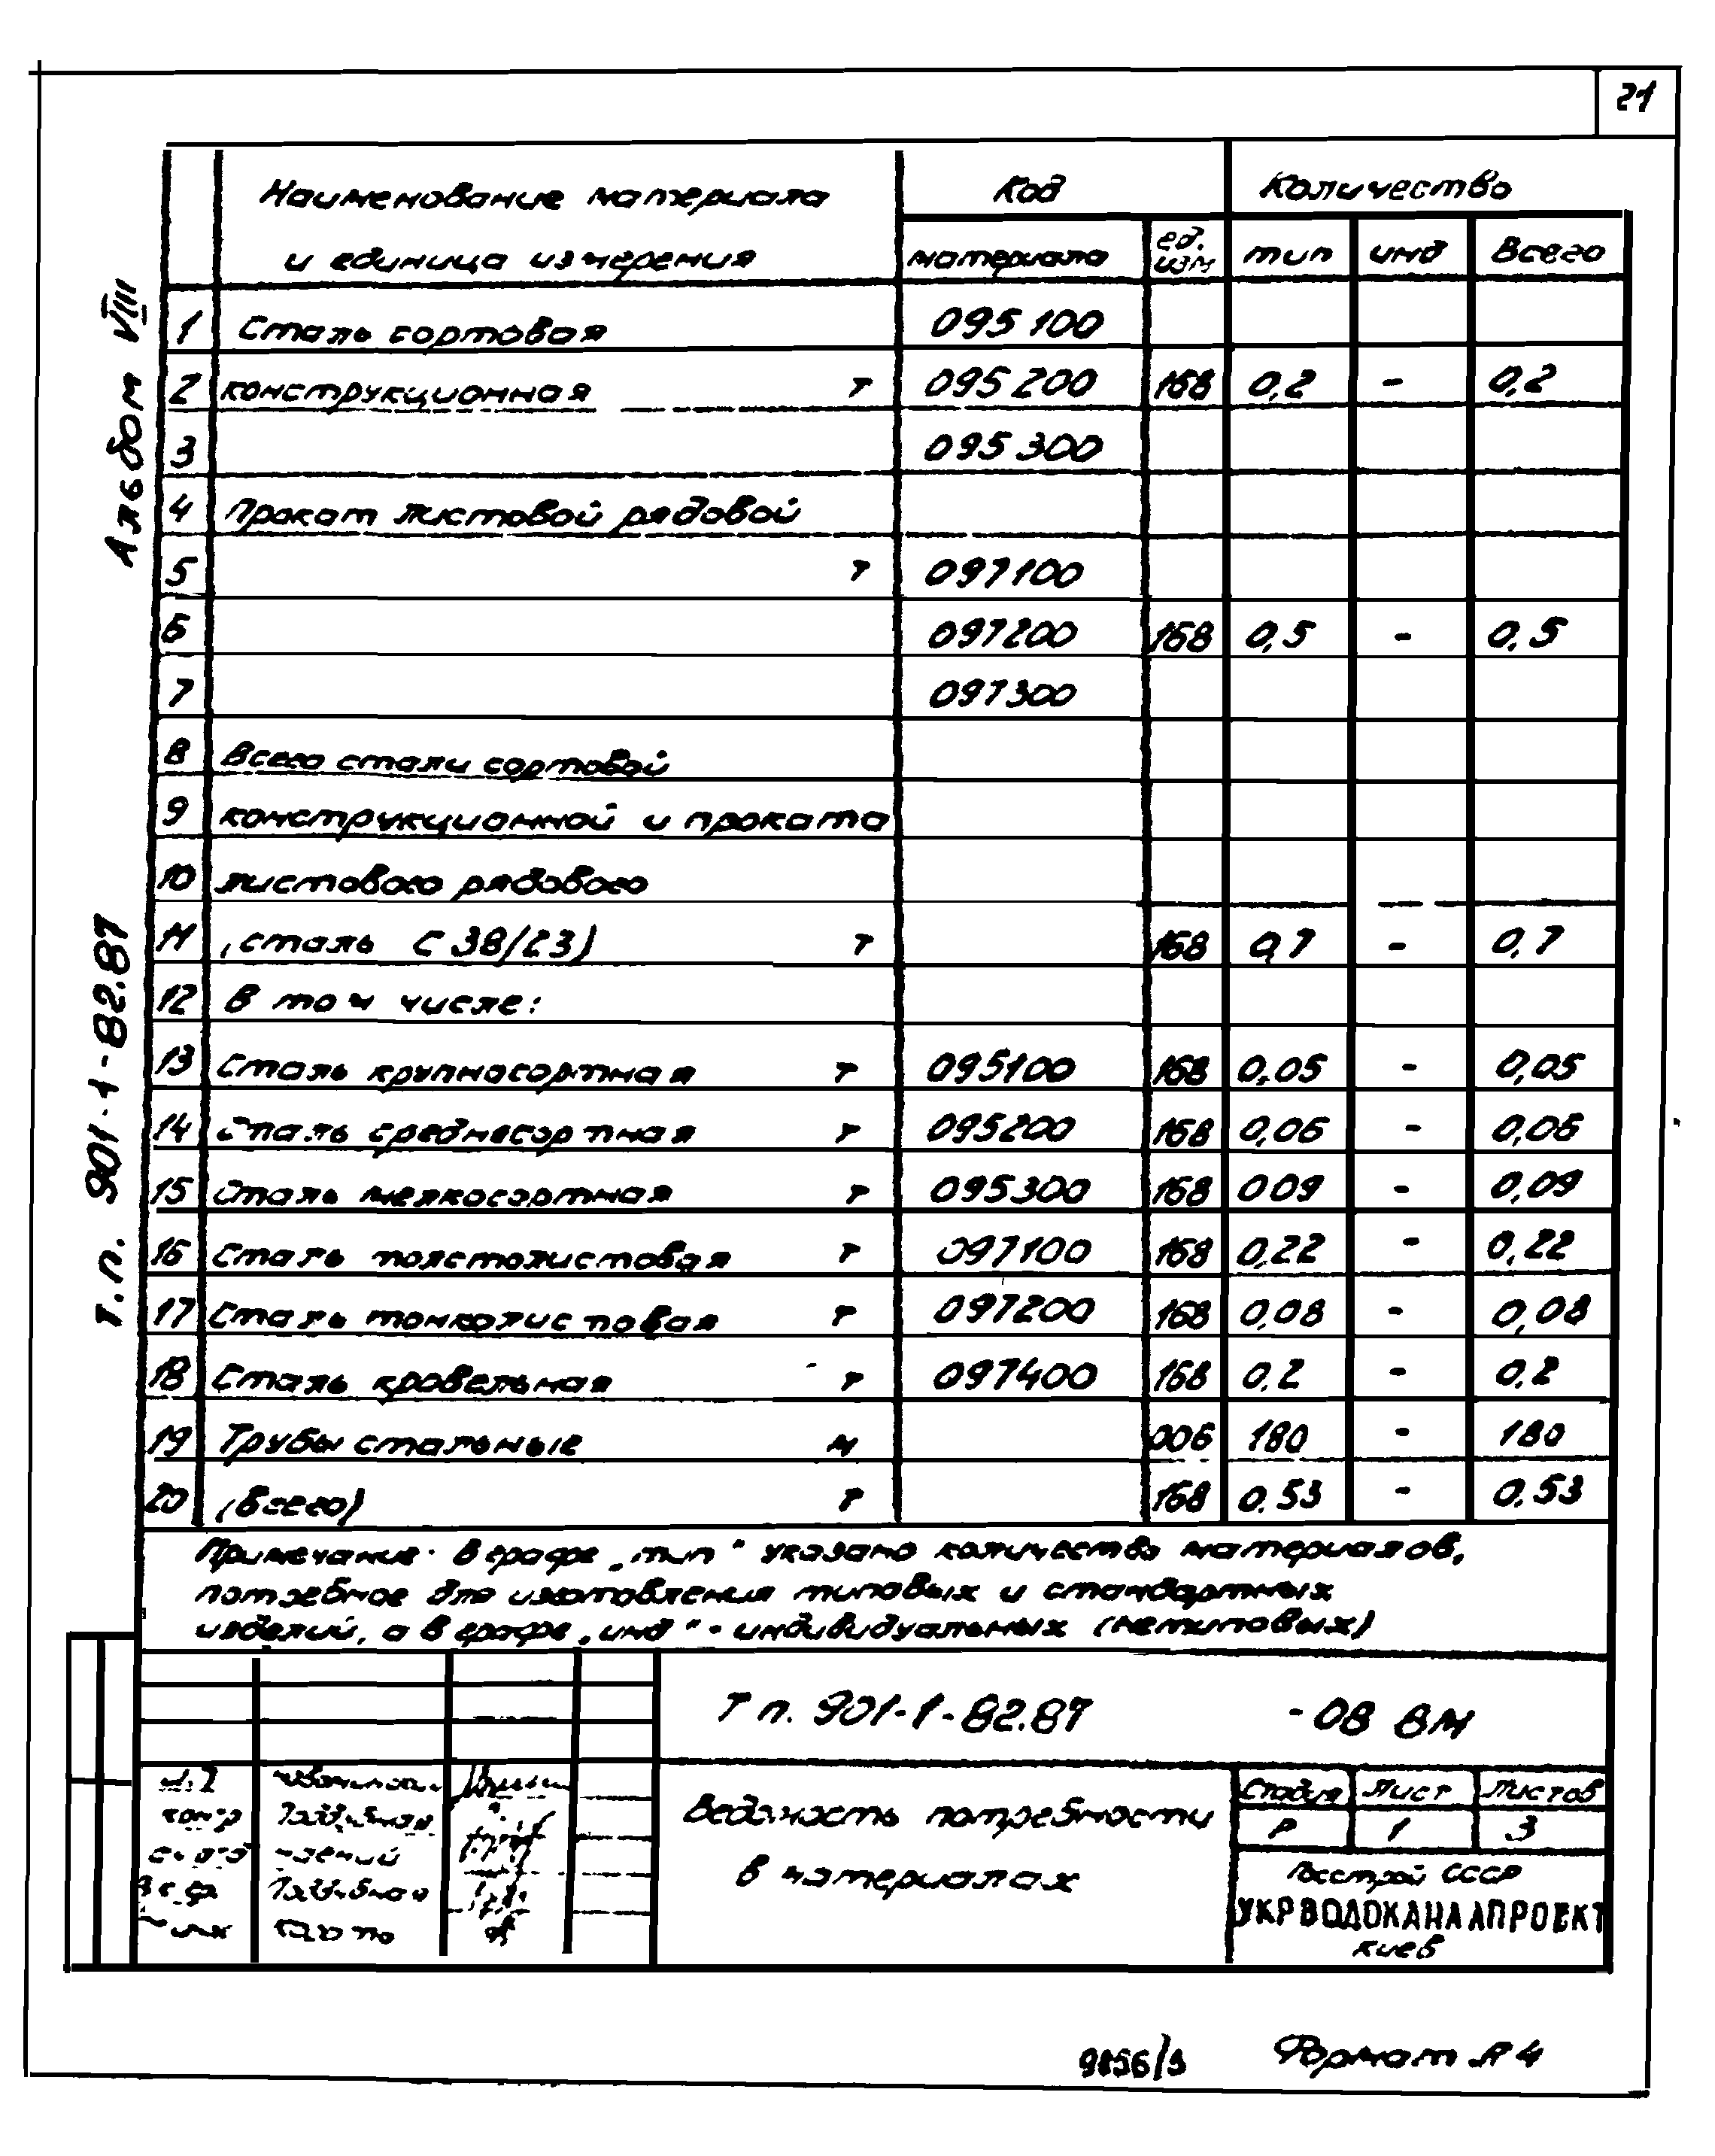 21
Альбом VIII
т.п. 901-1-82.87
Наименование материала и единица измерения Код Количество
материала ед. изм тип инд Всего
1 Сталь сортовая 095 100
2 конструкционная т 095 200 168 0,2 - 0,2
3 095 300
4 Прокат листовой рядовой
5 т 097100
6 097200 168 0,5 - 0,5
7 097300
8 Всего стали сортовой
9 конструкционной и проката
10 листового рядового
11 (сталь С 38/23) т 168 0,7 - 0,7
12 В том числе:
13 Сталь крупносортная т 095100 168 0,05 - 0,05
14 Сталь среднесортная т 095200 168 0,06 - 0,06
15 Сталь мелкосортная т 095300 168 009 - 0,09
16 Сталь толстолистовая т 097100 168 0,22 - 0,22
17 Сталь тонколистовая т 097200 168 0,08 - 0,08
18 Сталь кровельная т 097400 168 0,2 - 0,2
19 Трубы стальные м 006 180 - 180
20 (всего) т 168 0.53 - 0.53
Примечание. В графе „тип" указано количество материалов,
потребное для изготовления типовых и стандартных
изделий, а в графе „инд" - индивидуальных (нетиповых)
Т п. 901-1-82.87 -08 ВМ
Ведомость потребности
в материалах
Стадия Лист Листов
Р 1 3
Госстрой СССР
УКРВОДОКАНАЛПРОЕКТ
киев
9856/3 Формат А4